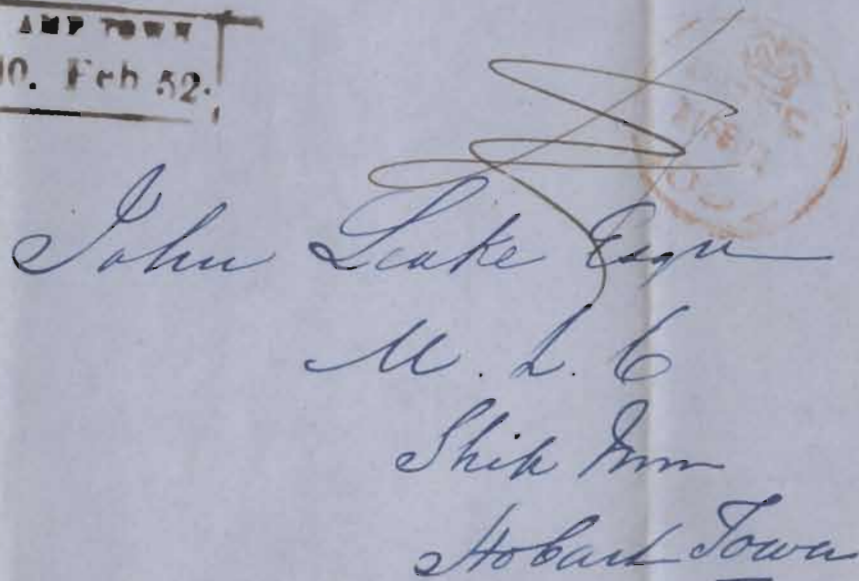 AMP TOWN
10. Feb 52.
John Leake Esqre
M. L. C
Ship Inn
Hobart Town